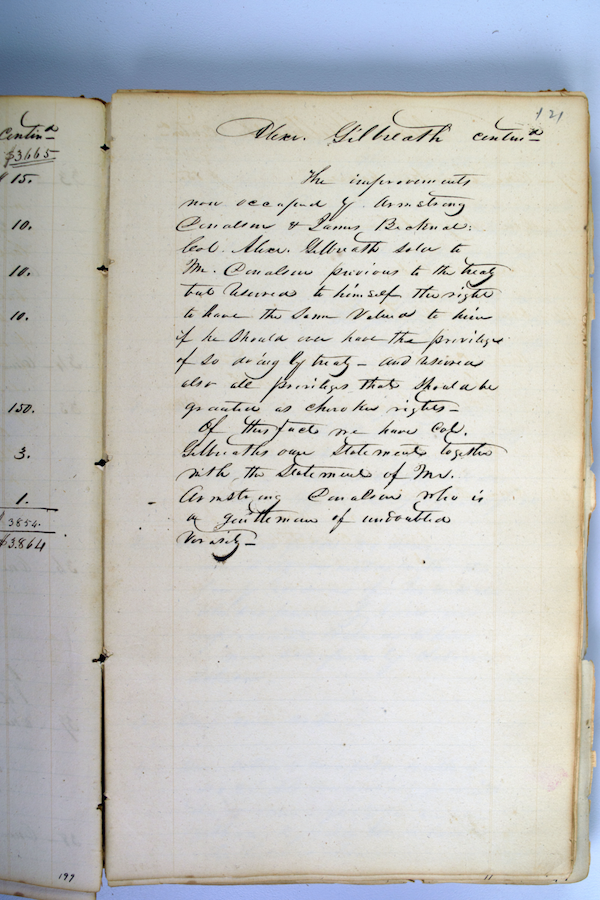 Contin^d
$3665
$ 15.
10.
10.
10.
150.
3.
1.
$ 3854.
$3.864
197
121
Alexr. Gilbreath contin^d
The improvements
now occupied by Armstrong
Conalson & James Bicknal.
Col. Alexr. Gilbreath sold to
Mr. Conalson previous to the treaty
but reserved to himself the right
to have the same valued to him
if he should ever have the privilige
of so doing by treaty – and reserved
also all priviliges that should be
granted as cherokee rights –
Of this fact we have Col.
Gilbreaths own statement together
with the statement of Mr.
Armstrong Conalson who is
a gentleman of undoubted
veracity –